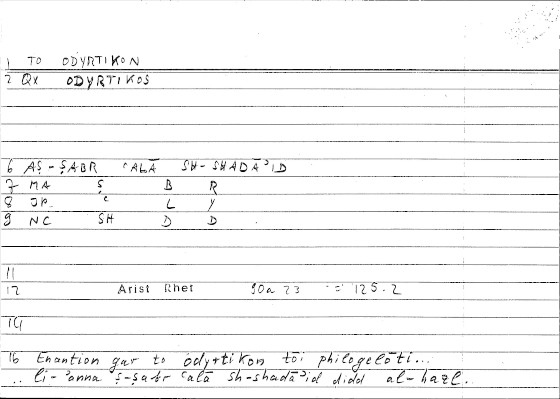 1 TO ODYRTIKON
2 Qx ODYRTIKOS
6 AṢ-ṢABR ʿALĀ SH-SHADĀʾID
7 MA Ṣ B R
8 JP ʿ L Y
9 NC SH D D
11
12 Arist Rhet 90a 23 = 125.2
14
16 Enantion gar to odyrtikon tōi philogelōti...
.. li-ʾanna ṣ-ṣabr ʿalā sh-shadāʾid didd al-hazl.